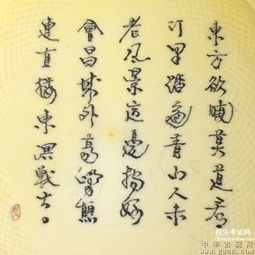 東方欲曉莫道君
行早踏遍青山人未
老風景這邊獨好
會昌城外高峰顛
連直接東溟戰士
招生考试网
中华古玩网